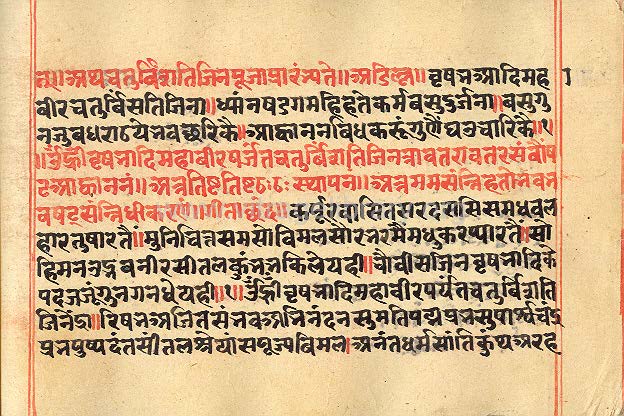 नमः॥अथचतुर्विंशतिजिनपूजाप्रारंभ्यते॥अडिल्ल॥वृषभआदिमह १
वीरचतुर्विंसतिजिना॥ध्यांनषडगमहिहतेकर्मवसुदुर्जना॥वसुगु
नजुतवधरा
॥उँह्रींवृषभादिमहावीरपर्जंतचतुर्विंशतिजिनअत्रावतरावतरसंवौष
टआह्वाननं॥अत्रतिष्टतिष्टठःठःस्थापनं॥अत्रममसंन्निहतोभवभ
ववषट्संन्निधीकरणं॥गीताछंद॥कर्पूरवासितसरदससिसमधवल
हारतुषारतैं॥मुनिचित्तसमसोविमलसौरभरमैमधुकरप्यारतैं॥सो
हिमननद्रवनीरसीतलकुंभभकिलेयही॥चौवीसजिनवृषभादिके
पदजजंगुनगनधेयही॥१॥उँह्रींवृषभादिमहावीरपर्यंतचतुर्विंशति
जिनेंद्रा॥रिषभअजितसंभवअभिनंदनसुमतिपद्मप्रभसुपार्श्वचंद्र
प्रभपुष्पदंतसीतलश्रेयांसपूज्यविमल॥अनंतधर्मसांतिकुंथअरह